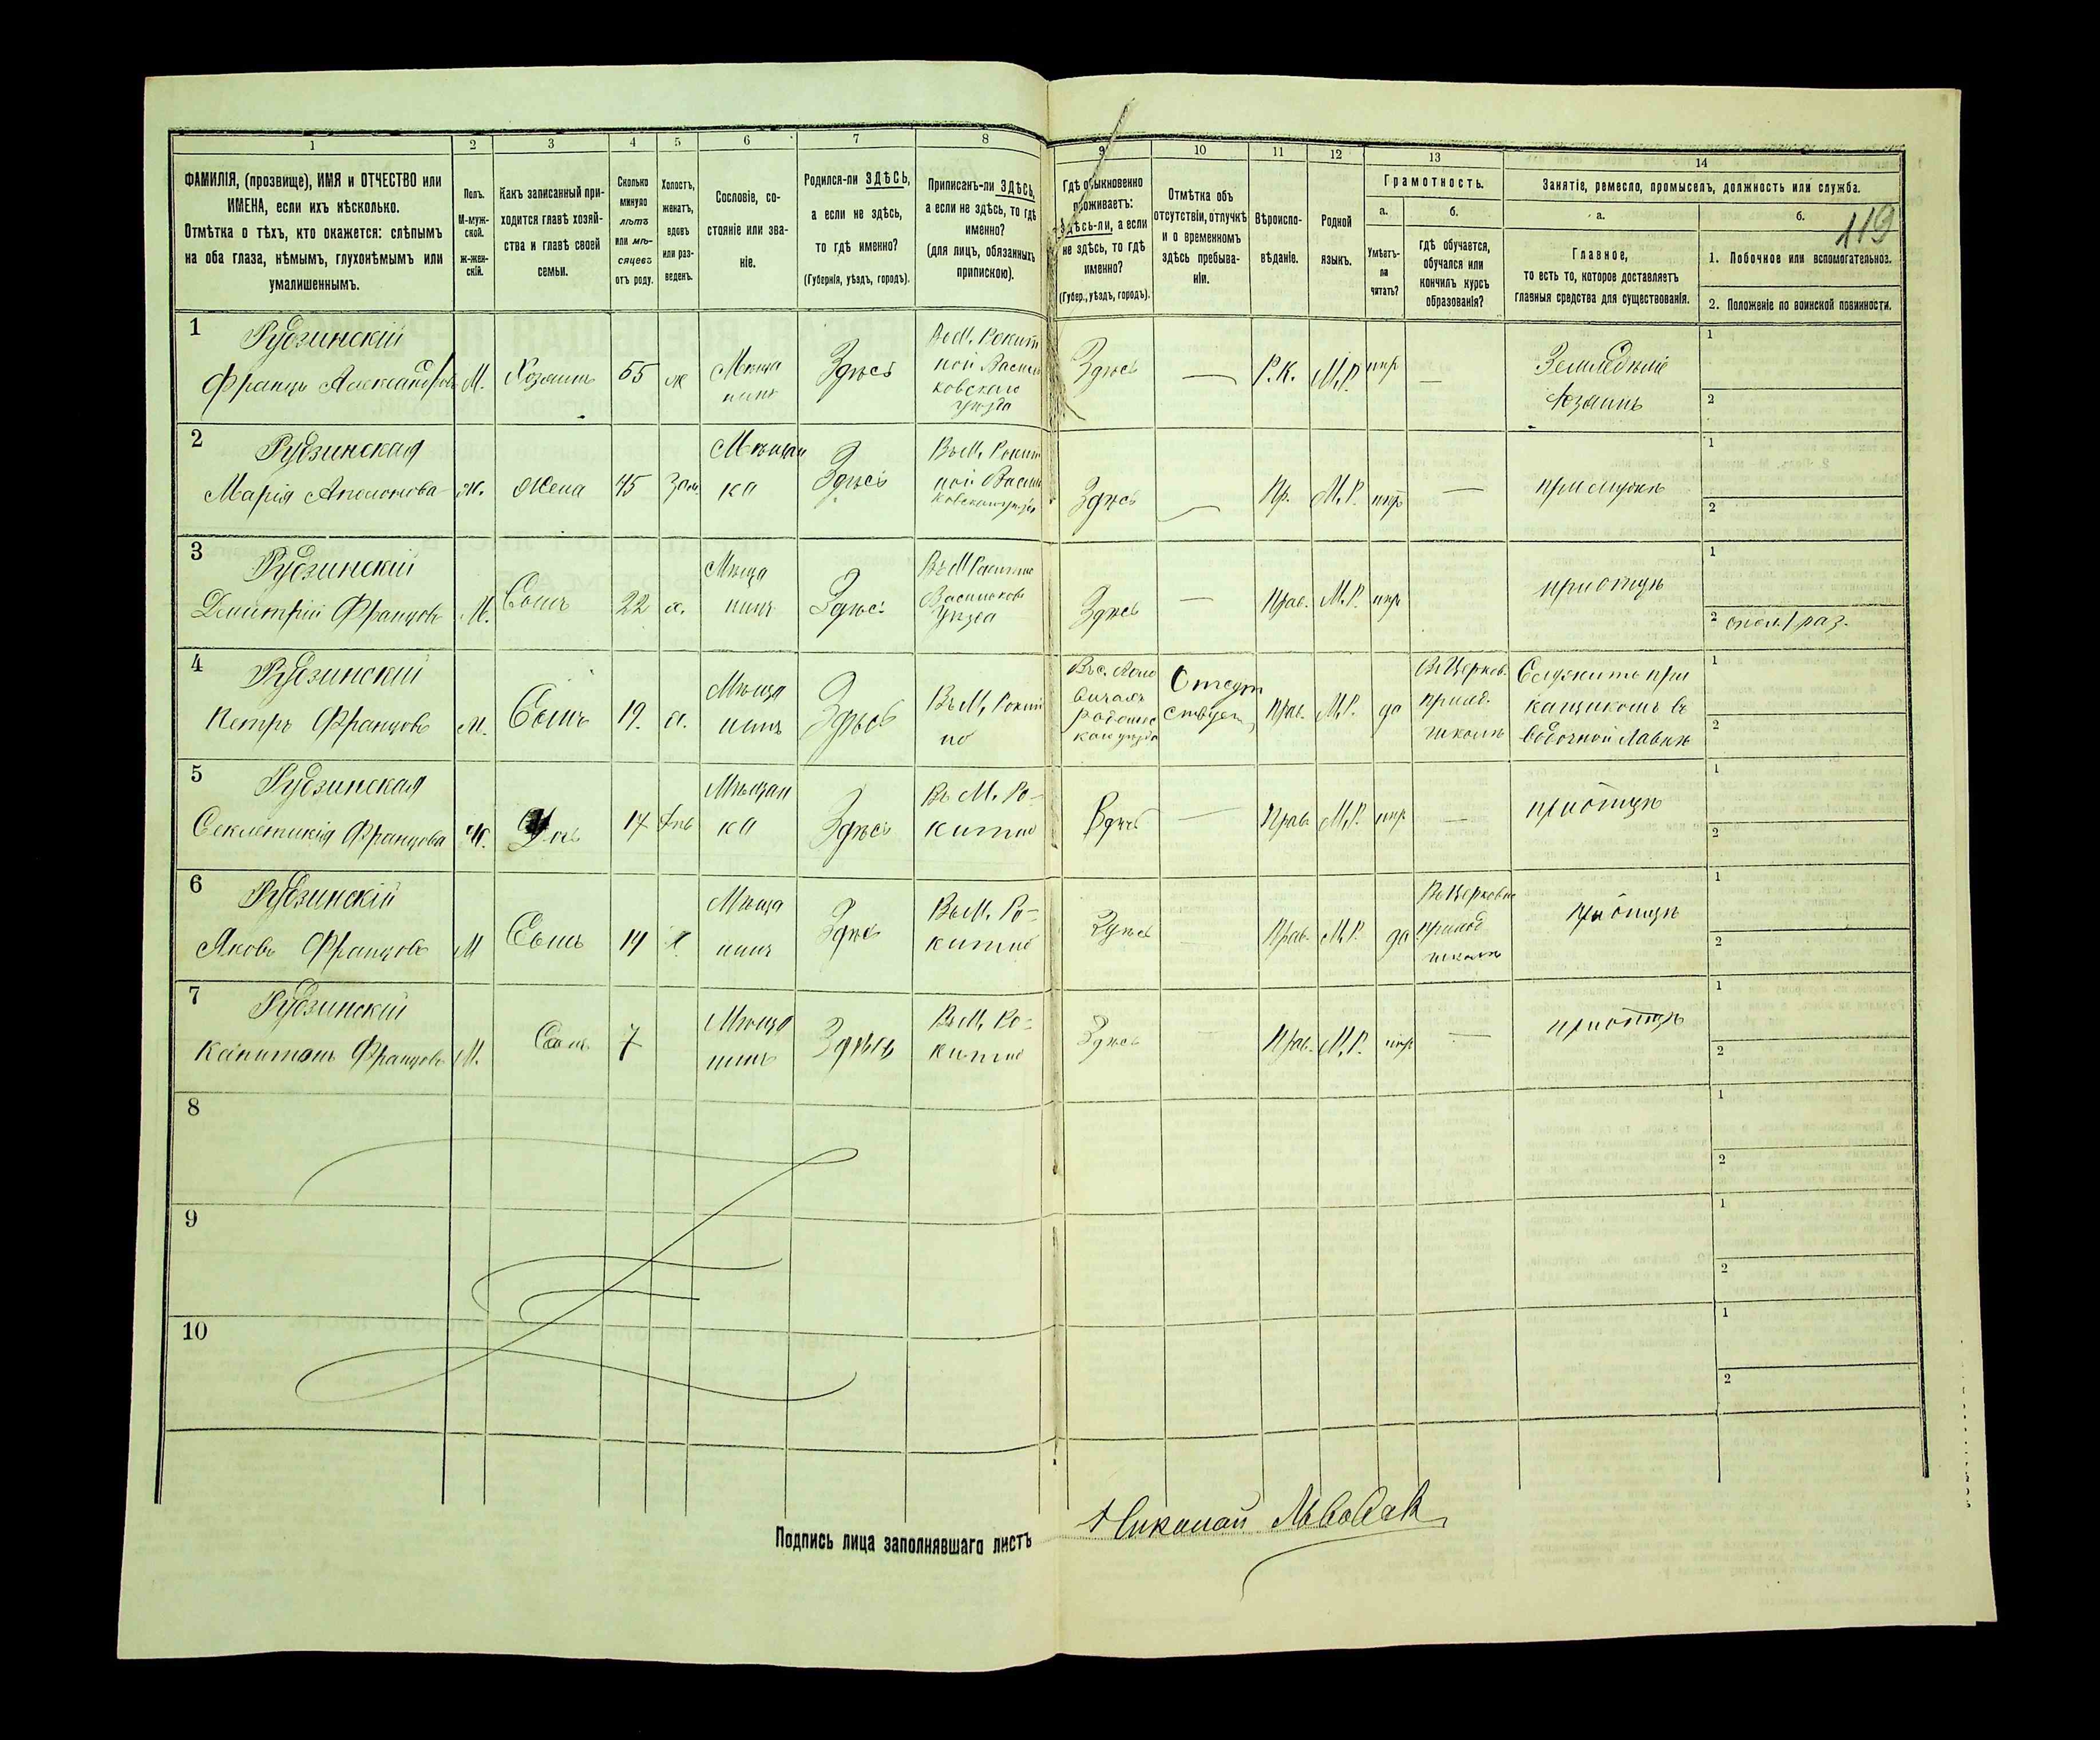 1 2 3 4 5 6 7 8 9 10 11 12 13 14
ФАМИЛІЯ, (прозвище), ИМЯ и ОТЧЕСТВО или
ИМЕНА, если ихъ нѣсколько.
Отмѣтка о тѣхъ, кто окажется: слѣпымъ
на оба глаза, нѣмымъ, глухонѣмымъ или
умалишеннымъ.
Полъ.
М-муж-
ской.
ж-жен-
скій.
Какъ записанный при-
ходится главѣ хозяй-
ства и главѣ своей
семьи.
Сколько
минуло
лѣтъ
или мѣ-
сяцевъ
отъ роду.
Холостъ,
женатъ,
вдовъ
или раз-
веденъ.
Сословіе, со-
стояніе или зва-
ніе.
Родился-ли ЗДѢСЬ,
а если не здѣсь,
то гдѣ именно?
(Губернія, уѣздъ, городъ).
Приписанъ-ли ЗДѢСЬ,
а если не здѣсь, то гдѣ
именно?
(для лицъ, обязанныхъ
припискою).
Гдѣ обыкновенно
проживаетъ:
Здѣсь-ли, а если
не здѣсь, то гдѣ
именно?
(Губер., уѣздъ, городъ).
Отмѣтка объ
отсутствіи, отлучкѣ
и о временномъ
здѣсь пребыва-
ніи.
Вѣроиспо-
вѣданіе.
Родной
языкъ.
Грамотность.
а.
Умѣетъ-
ли
читать?
б.
гдѣ обучается,
обучался или
кончилъ курсъ
образованія?
Занятіе, ремесло, промыселъ, должность или служба.
а.
Главное,
то есть то, которое доставляетъ
главныя средства для существованія.
б.
119
1. Побочное или вспомогательное.
2. Положеніе по воинской повинности.
1 Рудзинскій
Францъ Александровъ М. Хозяинъ 55 ж
Мѣща
нинъ
Здѣсь
Рокит
ной Василь
ковскаго
уѣзда
Здѣсь — Р.К. М.Р. нѣтъ —
Земледѣліе
хозяинъ
1
2
2 Рудзинская
Марія ж. Жена 45 зам.
Мѣщан
ка
Здѣсь
Въ М. Рокит
ной Василь
ковскаго уѣзда
Здѣсь — Пр. М.Р. нѣтъ —
при мужѣ
1
2
3 Рудзинскій
Дмитрій Францовъ М. Сынъ 22 х.
Мѣща
нинъ
Здѣсь
Въ М Рокитно
Васильков
Уѣзда
Здѣсь — Прав. М.Р. нѣтъ
при отцѣ
1
2 опол. 1 раз.
4 Рудзинскій
Петръ Францовъ М. Сынъ 19. х.
Мѣща
нинъ
Здѣсь
Въ М. Рокит
но
Отсут
ствует
Прав. М.Р. да
Въ Церков.
приход.
школѣ
Служитъ при
кащикомъ въ
водочной лавкѣ
1
2
5 Рудзинская
Секлетикія Францова Ж. Дочь 17 Дѣв
Мѣщан
ка
Здѣсь
Въ М. Ро-
китно
Здѣсь — Прав. М.Р. нѣтъ —
при отцѣ
1
2
6 Рудзинскій
Яковъ Францовъ М Сынъ 14 х
Мѣща
нинъ
Здѣсь
Въ М. Ро-
китно
Здѣсь Прав. М.Р. да
Въ Церковно
приход
школѣ
при отцѣ
1
2
7 Рудзинскій
Капитонъ Францовъ М. Сынъ 7
Мѣща
нинъ
Здѣсь
Въ М. Ро-
китно
Здѣсь — Прав. М.Р. нѣтъ —
при отцѣ
1
2
8
1
2
9
1
2
10
1
2
Подпись лица заполнявшаго листъ Николай